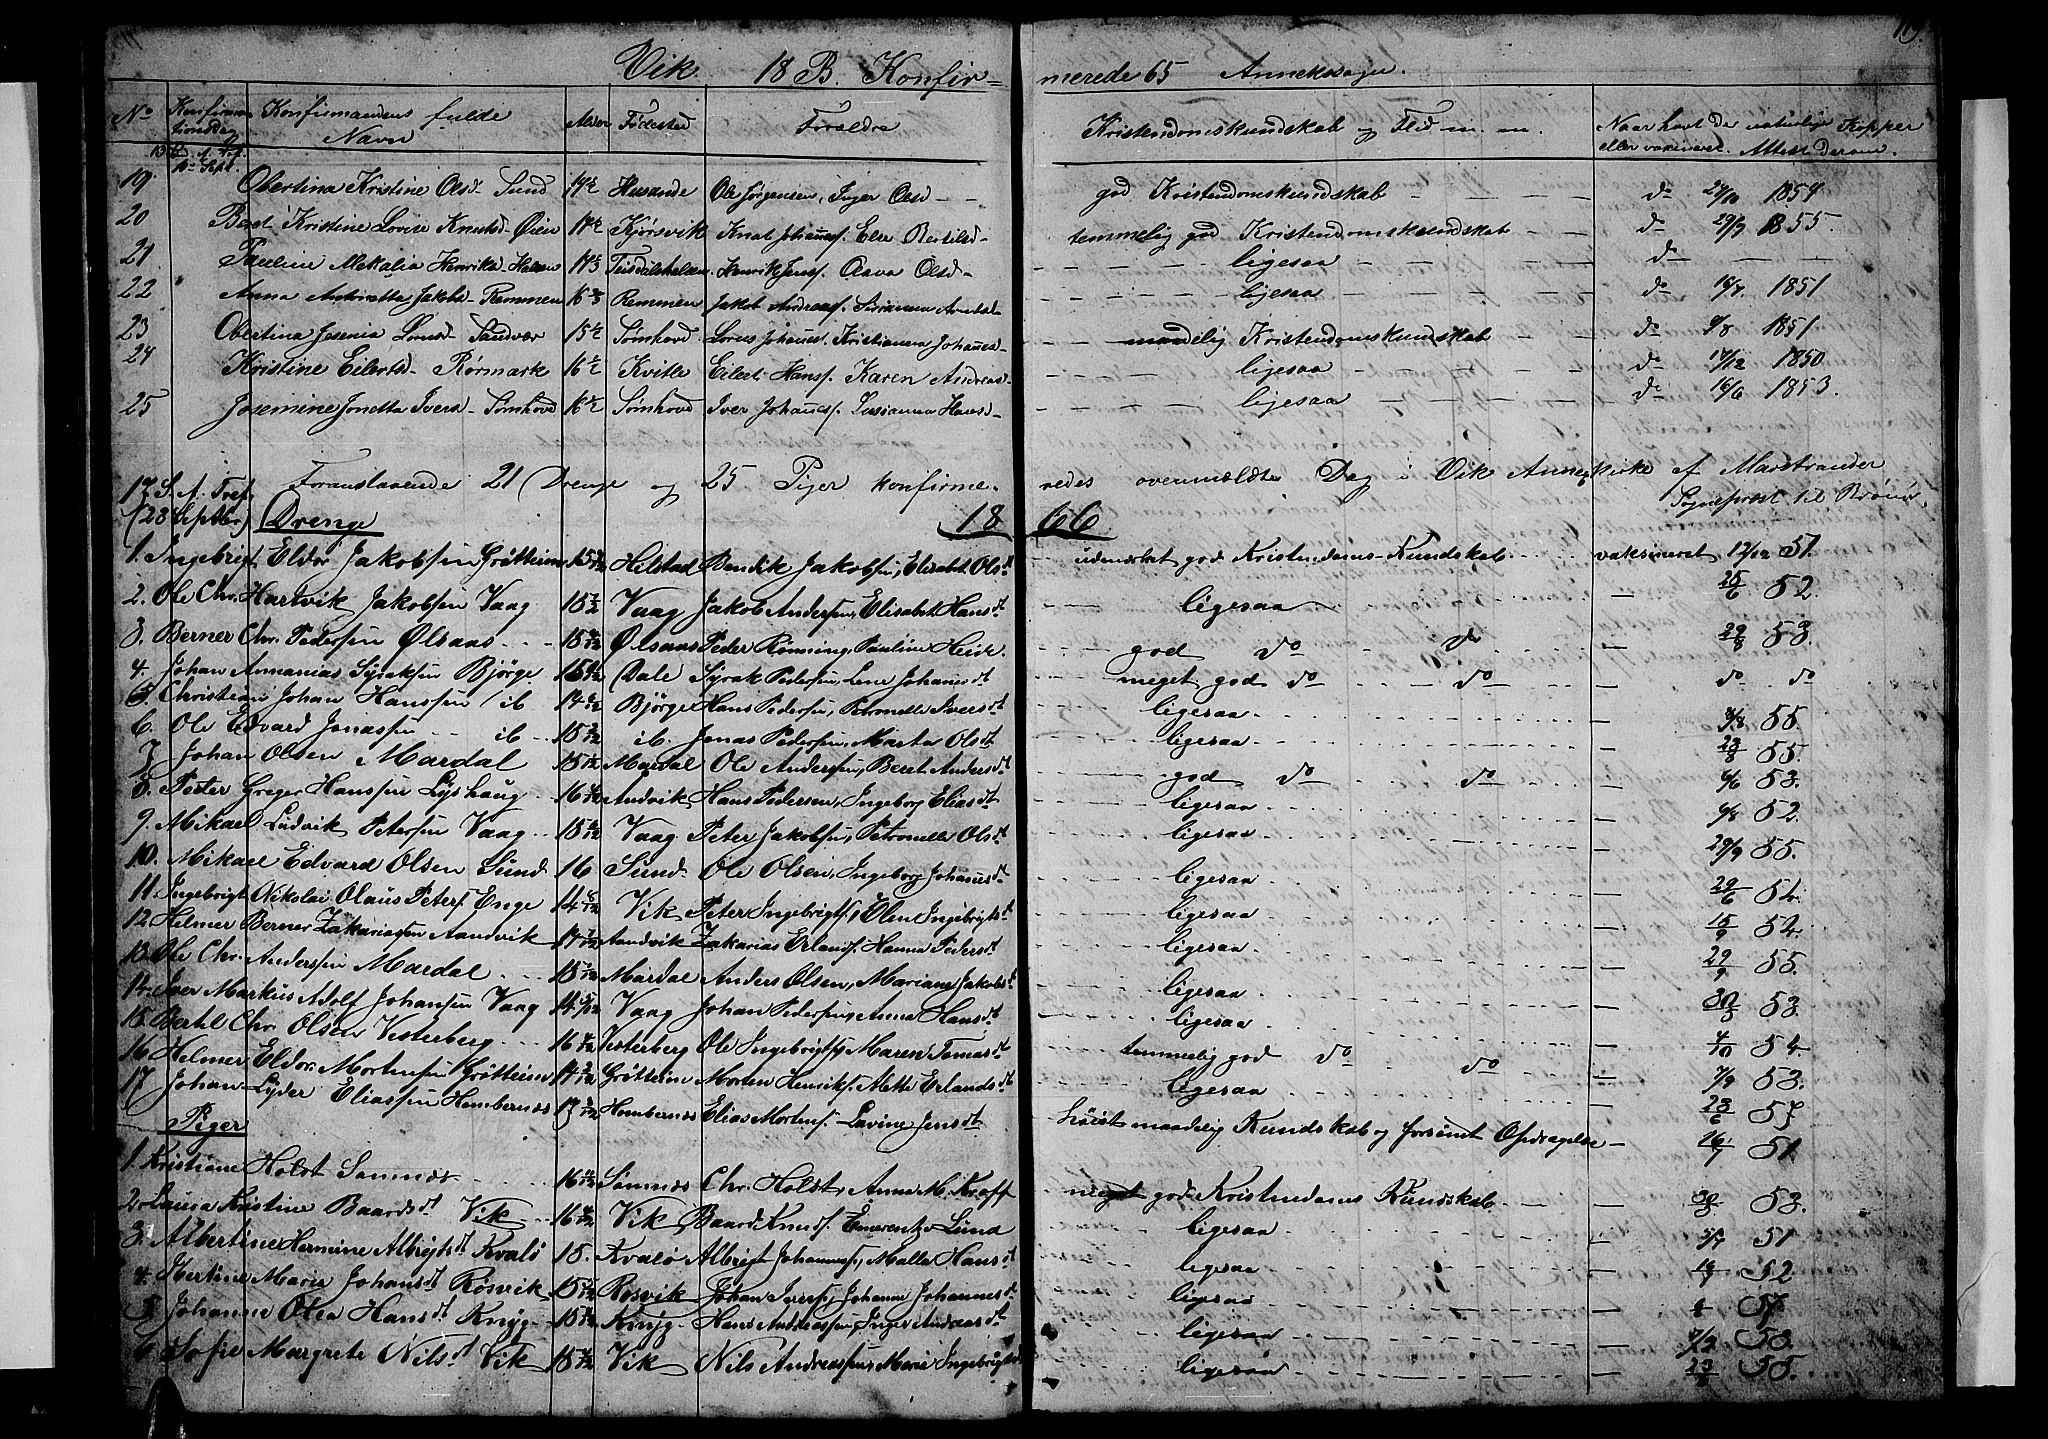 119.
Vik 18 B. Konfir= merede 65 Anneksogn.
No Konfirma tionsdag Konfirmandens fulde Navn Alder Fødested Forældre Kristendomskundskab og Flid m. m. Naar havt de naturlige Kopper eller vaksineret. Attest derom.
19 Obertina Kristine Olsd Sund 17½ Husande Ole Jørgensen, Inger Olsd god Kristendomskundskab do 1854
20 Beret Kristine Lovise Knutsd Øien Kjørsvik Knut Johannesf. Else Bertilsd temmelig god Kristendomskundskab do 29/9 1855.
21 Pauline Henrik Jensf. Olsd ligesaa do
22 Anna Antonetta Jakobsd Remmen 16 Remmen Jakob Andreasf. ligesaa do 1851
23 Obertina Sandvær 15½ Sømhovd Johannesf. Kristianna Johannesd maadelig Kristendomskundskab do 1851
24 Kristine Eilertsd Rørmark 16½ Kvitle Eilert Hansf. Karen Andreasd ligesaa do 1850
25 Josemine Jonetta Iversd Sømhovd 16½ Sømhovd Iver Johannesf. Susianna Hansd ligesaa do 16/6 1853.
Foranstaaende 21 Drenge og 25 Piger konfirme- redes ovenmældte Dag i Vik Annexkirke af Marstrander
Sogneprest til Brønø.
17 S. A. Tref.
(23 Septbr) Drenge 18 66
1. Ingebrigt Eldor Jakobsen Grøtteim 15 Hilstad Bendik Jakobsen, Elisabet Olsdt udmærket god Kristendoms-Kundskab vaksineret 12/12 51.
2. Ole Chr. Hartvik Jakobsen Vaag 15 Vaag Jakob Andersen, Elisabet Hansdt ligesaa 25/6 52.
3. Berner Chr. Pedersen Ølsaas 15 Ølsaas Peder Rønning, Pauline Heide. god do do 29/8 53.
4. Johan Annanias Syraksen Bjørge 15 Dale Syrak Pedersen, Lene Johansdt meget god do do do do
5. Christian Johan Hanssen ib 14 Bjørge Hans Pedersen, Petronelle Iversdt ligesaa 55.
6. Ole Edvard Jonassen ib 15 ib. Jonas Pedersen, Marta Olsdt ligesaa 23/8 55.
7. Johan Olsen Mardal 15 Mardal Ole Anderssen, Beret Andersdt god do do 6/6 53.
8. Peter Greger Hanssen Lyshaug 16 Andvik Hans Pedersen, Ingeborg Eliasdt ligesaa 52.
9. Mikael Ludvik Petersen Vaag 15 Vaag Peter Jakobsen, Petronelle Olsdt ligesaa 29/9 55.
10. Mikael Edvard Olsen Sund 16 Sund Ole Olsen, Ingeborg Johansdt ligesaa 29/6 54.
11. Ingebrigt Nikolai Olaus Petersf. Enge 14 Vik Peter Ingebrigtsf, Olen Ingebrigtsdt ligesaa 15/9 54.
12. Helmer Berner Zakariassen Aandvik 17 Aandvik Zakarias Erlandsf. Hanna Pedersdt ligesaa 29/9 55.
13. Ole Chr. Anderssen Mardal 15 Mardal Anders Olsen, Mariane Jakobsdt ligesaa 53.
14. Iver Markus Adolf Johansen Vaag 14 Vaag Johan Pedersen, Anna Hansdt ligesaa 54.
15. Bertel Chr. Olsen Vesterberg 16 Vesterberg Ole Ingebrigtsf, Maren Tomasdt temmelig god do do 7/9 53.
16 Helmer Eldor Mortensen Grøtteim 17 Grøtteim Morten Henriksf. Mette Erlandsdt ligesaa 23/6 57
17 Johan Lyder Eliassen Hombornes 17 Hombernes Elias Mortensf. Lavine Jensdt høist maadelig Kundskab og forsømt Opdragelse 16/7 51.
Piger
1. Kristiane Holst Sømnes 16 Sømnes Chr. Holst, Anna M. Kroff meget god Kristendoms Kundskab 53.
2. Laura Kristine Baardsdt Vik 16 Vik Baard Knudsf. Emerentze Lund ligesaa 51
3. Albertine Hermine Albrigtsdt Kvalø 15. Kvalø Albrigt Johannesf, Malla Hansdt ligesaa 52.
4. Mertine Marie Johansdt Røsvik 15 Røsvik Johan Iversf, Johanna Johannesdt ligesaa 57.
5. Johanne Olea Hansdt Knyg 15 Knyg. Hans Andreassen, Inger Andreasdt ligesaa 7/9 53.
6 Sofie Margrete Nilsdt Vik 15 Vik Nils Andreassen, Marie Ingebrigtsdt ligesaa 23/8 55.